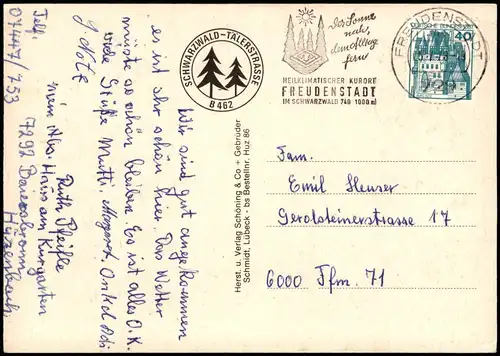 Wir sind gut angekommen
und sehr schön hier. Das Wetter
müsste so schön bleiben. Es ist alles O.K.
viele Grüße Mutti, Margret, Onkel
Tel.
07447/253
mein Abs. Haus am Kurgarten
7292 Baiersbronn
SCHWARZWALD-TÄLERSTRASSE
B 462
Der Sonne
nahe,
dem Alltage
fern
HEILKLIMATISCHER KURORT
FREUDENSTADT
IM SCHWARZWALD 740 1000 m
FREUDENSTADT
40
Herst. u. Verlag Schöning & Co + Gebrüder
Schmidt, Lübeck - bs Bestellnr. Huz 86
Fam.
Emil Heuser
Gerolsteinerstrasse 17
6000 Ffm. 71